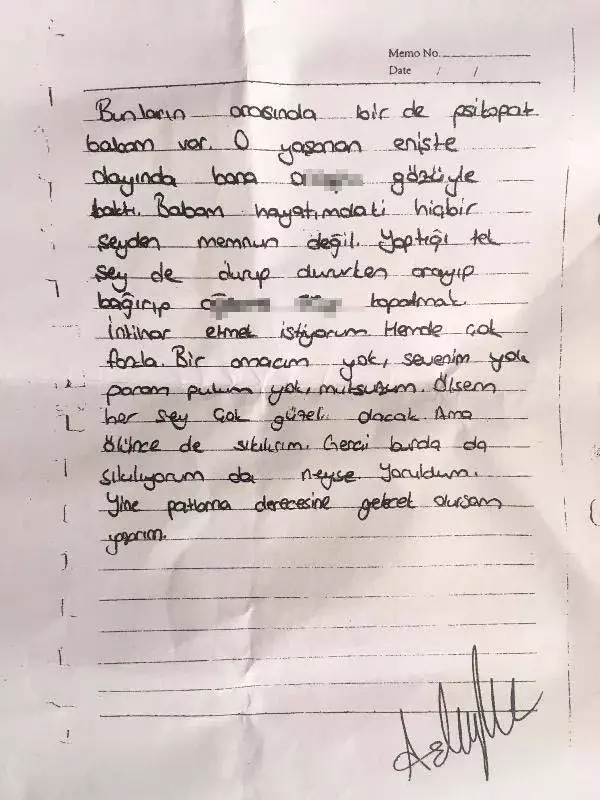 Memo No.
Date / /
Bunların arasında bir de psikopat
babam var. O yaşanan enişte
olayında bana gözüyle
baktı. Babam hayatımdaki hiçbir
şeyden memnun değil. Yaptığı tek
şey de durup dururken arayıp
bağırıp kapatmak.
İntihar etmek istiyorum Hemde çok
fazla. Bir amacım yok, sevenim yok
param pulum yok, mutsuzum. Ölsem
her şey çok güzel olacak Ama
Ölünce de sıkılırım. Gerçi burda da
sıkılıyorum da neyse. Yoruldum.
Yine patlama derecesine gelecek olursam
yazarım.